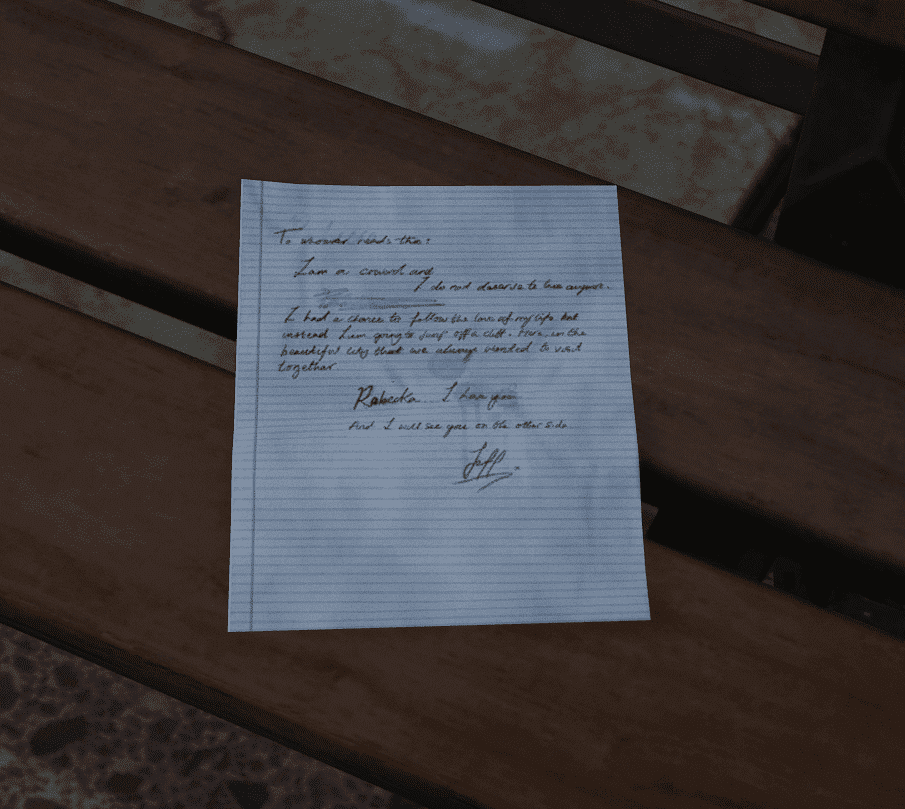 To whomever reads this:
I am a coward and
I do not deserve to live anymore.
I had a chance to follow the love of my life but
instead I am going to jump off a cliff. Here, in the
beautiful city that we always wanted to visit
together.
Rebecka. I love you
And I will see you on the other side
Jeff.